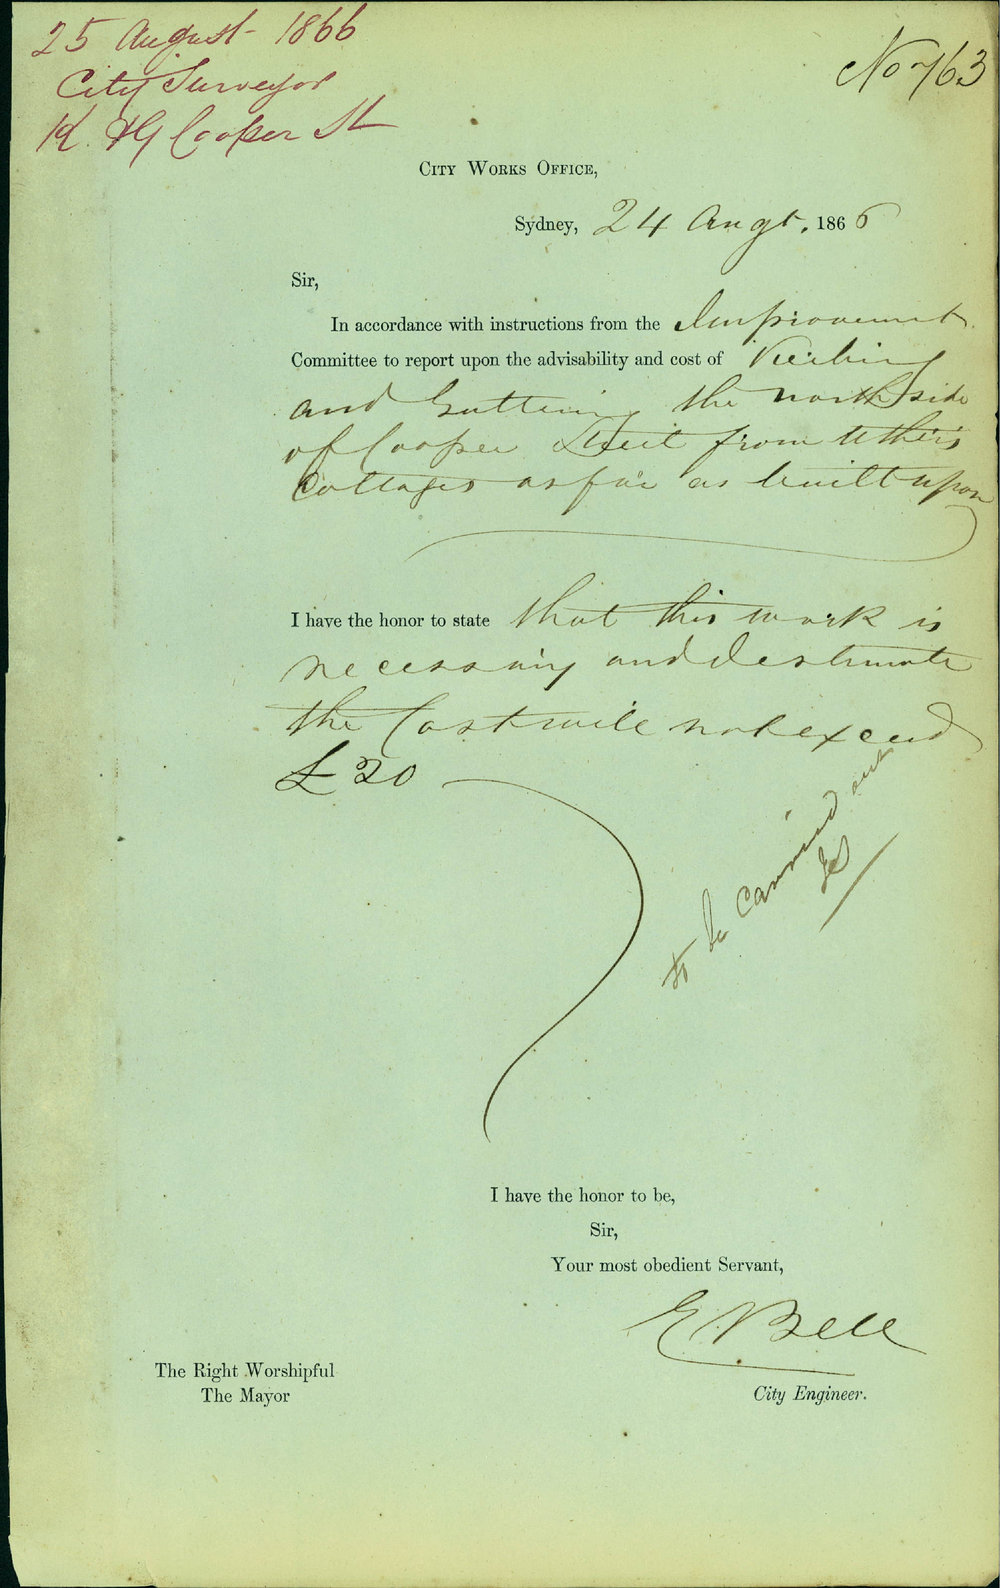 25 August 1866
No 763
City Surveyor
K. & G Cooper St
CITY WORKS OFFICE,
Sydney, 24 Augt. 1866
Sir,
In accordance with instructions from the Improvement
Committee to report upon the advisability and cost of Kerbing
and Guttering the north side
of Cooper Street from
Cottages as far as built upon
I have the honor to state that this work is
necessary and I estimate
the Cost will not exceed
£20
to be carried out
I have the honor to be,
Sir,
Your most obedient Servant,
E Bell
The Right Worshipful
The Mayor
City Engineer.